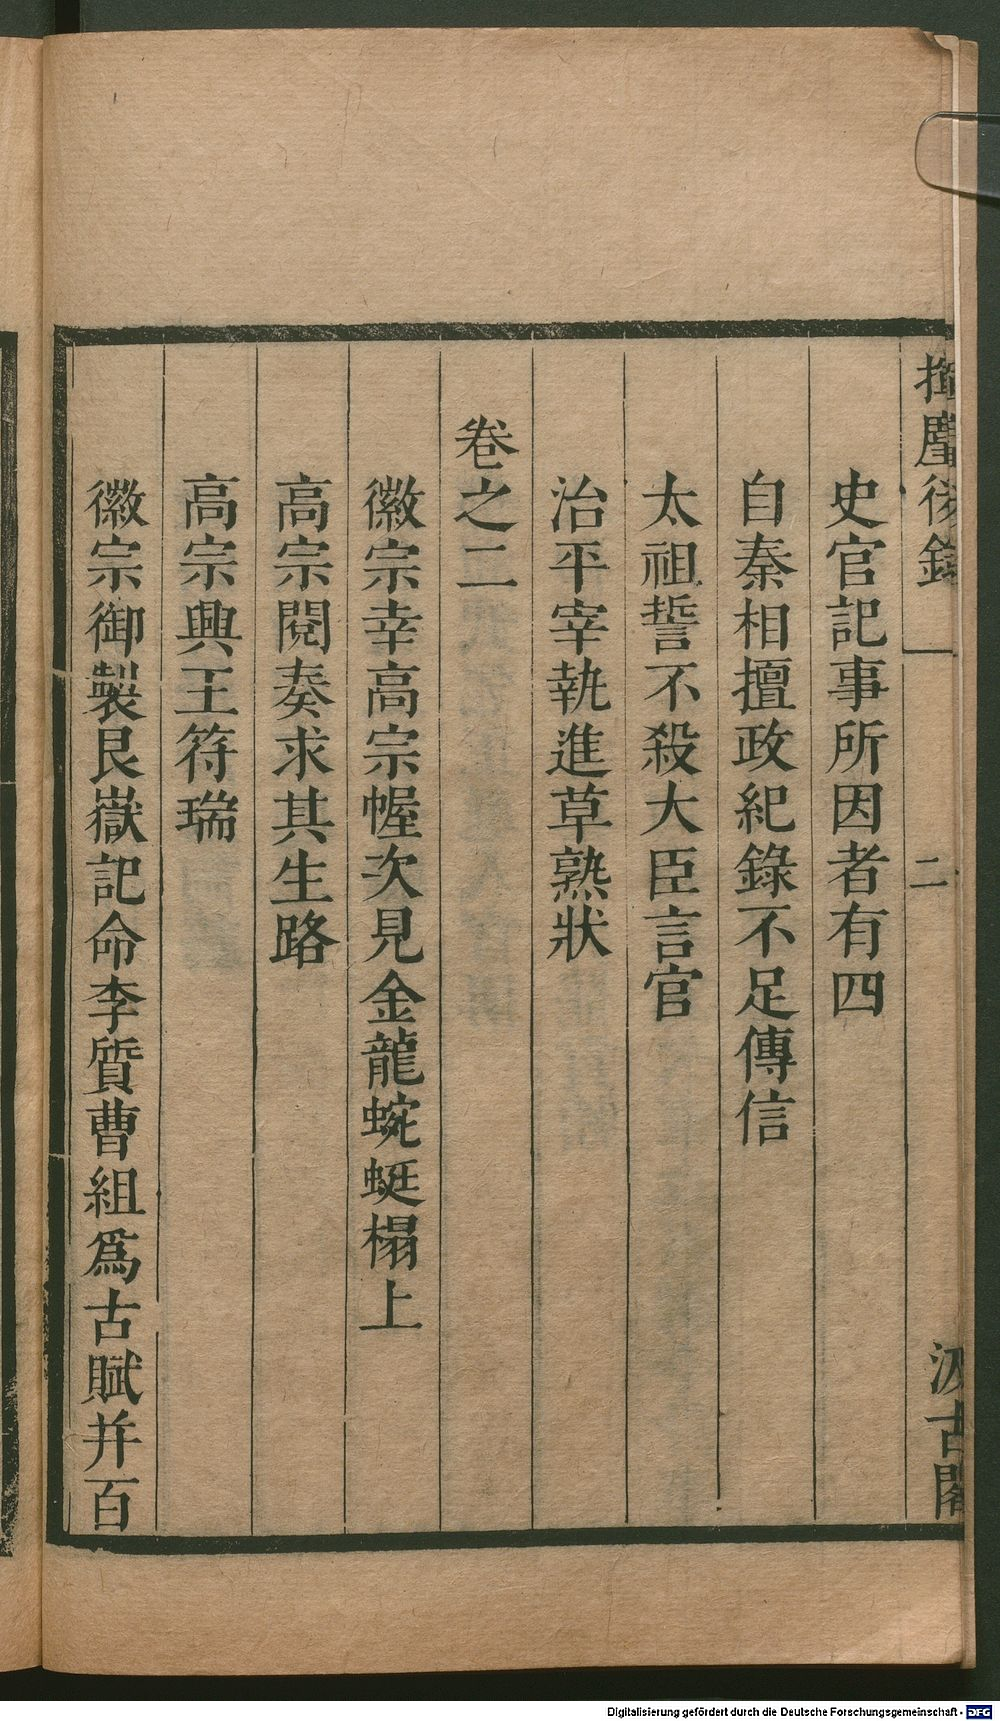 揮麈後錄一
二
汲古閣
史官記事所因者有四
自秦相擅政紀錄不足傳信
太祖誓不殺大臣言官
治平宰執進草熟狀
卷之二
徽宗幸高宗幄次見金龍蜿蜒榻上
高宗閱奏求其生路
高宗興王符瑞
徽宗御製艮嶽記命李質曹組爲古賦并百
Digitalisierung gefördert durch die Deutsche Forschungsgemeinschaft - DFG